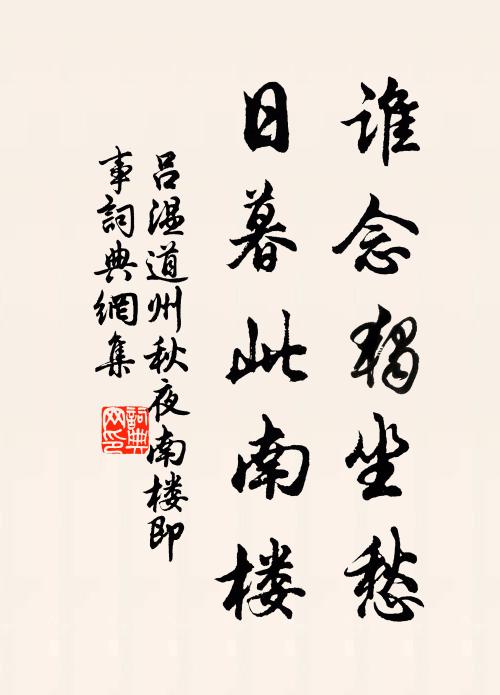 谁念独坐愁
日暮此南楼
吕温道州秋夜南楼即
事词典網集
詞典
网印